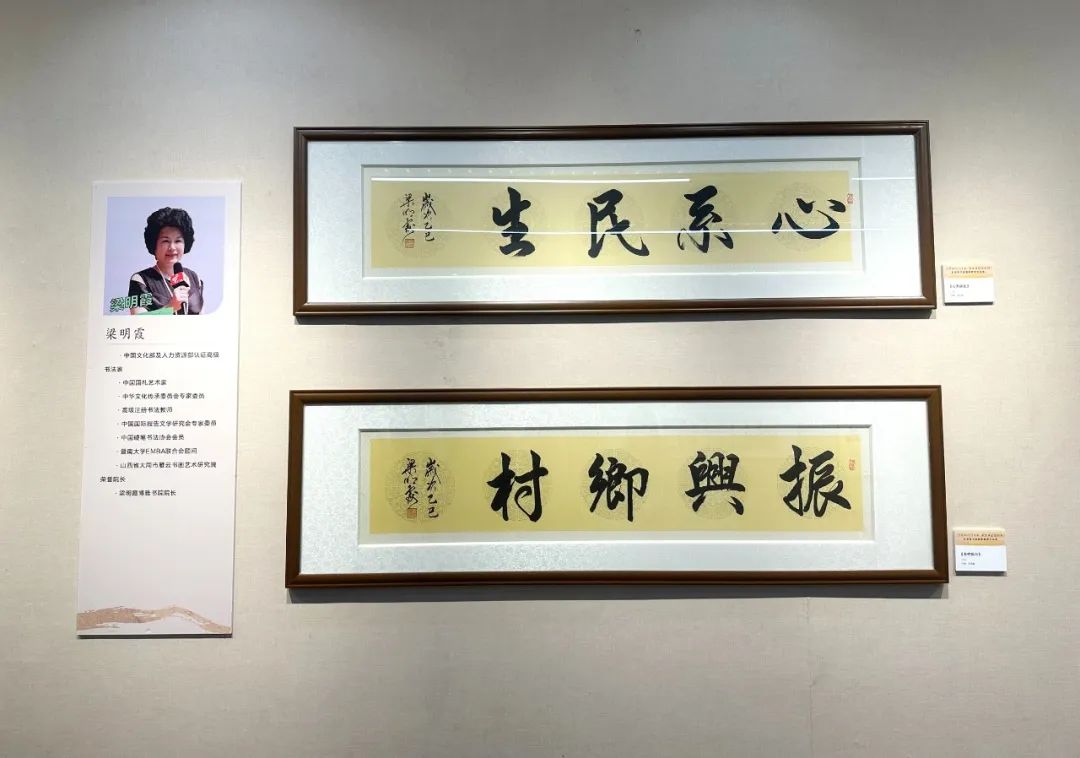 梁明霞
梁明霞
·中国文化部及人力资源部认证高级
书法家
·中国国礼艺术家
·中华文化传承委员会专家委员
·高级注册书法教师
·中国国际报告文学研究会专家委员
·中国硬笔书法协会会员
·暨南大学EMBA联合会顾问
·山西省大同市墨云书画艺术研究院
荣誉院长
·梁明霞博雅书院院长
心系民生
歲次乙巳
梁明霞
振興鄉村
歲次乙巳
梁明霞